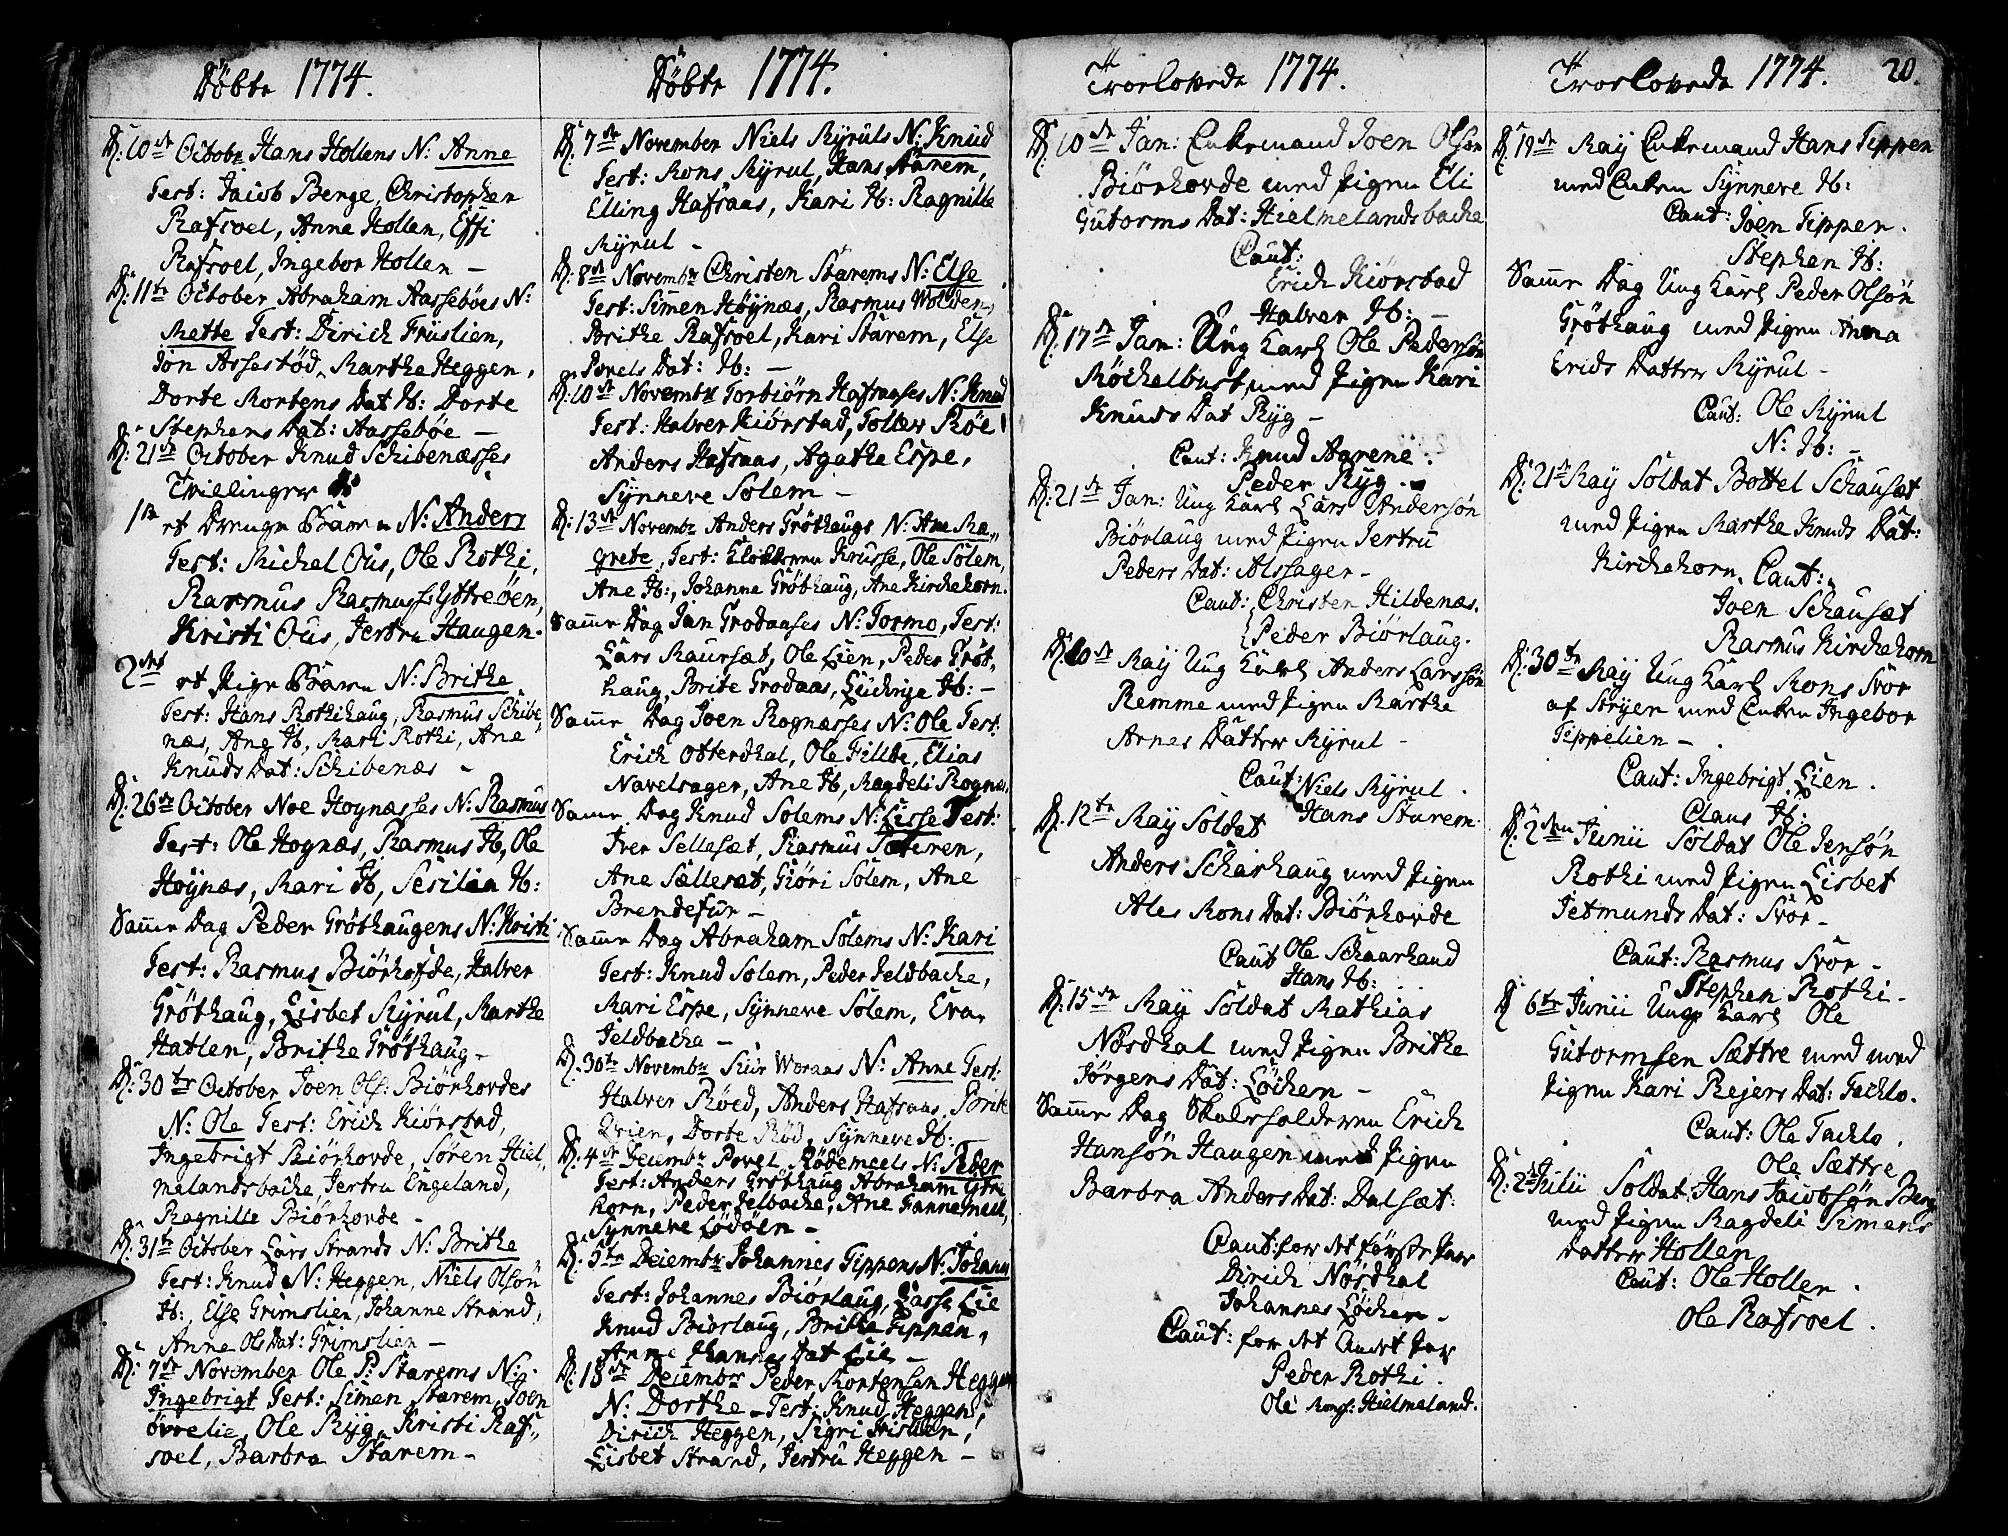 Döbte 1774.
D: 10de Octobr Hans Hollens N: Anne
Test: Jacob Berge, Christopher
Rafsoel, Anne Hollen, Effi
Rafsoel, Ingebor Hollen –
D: 11te October Abraham Aasseböes N:
Mette Test: Dirich Fruslien,
Jon Assestöd, Marthe Heggen,
Dorte Mortens Dat Ib: Dorte
Stephens Dat: Aassebøe –
D: 21de October Knud Schibenæsses
Tvillinger
1te et Drenge Barn N: Anders
Test: Michel Ous, Ole Rothi,
Rasmus Rasmuss: Yttreöen,
Kristi Ous, Jertru Haugen.
2det et Pige Barn N: Brithe
Test: Hans Rothihaug, Rasmus Schibe,
næs, Ane Ib, Mari Rothi, Ane
Knuds Dat: Schibenæs –
D: 26de October Noe Hoynæsses N: Rasmus
Test: Ole Hognæs, Rasmus Ib, Ole
Hoynæs, Mari Ib, Sesilia Ib:
Samme Dag Peder Gröthaugens N: Kristi
Test: Rasmus Biörhofde, Halver
Gröthaug, Lisbet Myrul, Marthe
Hatlen, Brithe Gröthaug –
D: 30te October Joen Ols: Biörhovdes
N: Ole Test: Erich Kiörstad,
Ingebrigt Biörhovde, Sören Hiel,
melandsbache, Jertru Engeland,
Ragnille Biörhovde –
D: 31te October Lars Strands N: Brithe
Test: Knud N: Heggen, Niels Olsön
Ib:, Else Grimslien, Johanne Strand,
Anne Ols Dat: Grimslien –
D: 7de November Ole P: Starems N:
Ingebrigt Test: Simen Starem, Joen
övrelie, Ole Ryg, Kristi Raf,,
soel, Barbra Starem –
Döbte 1774.
D: 7de November Niels Myruls N: Knud
Test: Mons Myrul, Hans Starem,
Elling Hafsaas, Kari Ib: Ragnille
Myrul –
D: 8de Novembr Christen Starems N: Else
Test: Simen Höynæs, Rasmus Wolden,
Brithe Rafsoel, Kari Starem, Else
Povels Dat: Ib: –
D: 10de Novembr Torbiörn Hafsaases N: Knud
Test: Halver Kiörstad, Tollev Röe
Anders Hafsaas, Agathe Espe,
Synneve Solem –
D: 13de Novembr Anders Gröthaugs N: Ane Ma,,
grete, Test: Klockeren Krusse, Ole Solem,
Ane Ib:, Johanne Gröthaug, Ane Kirchehorn.
Samme Dag Jan Grodaases N: Tormo, Test:
Lars Maursæt, Ole Lien, Peder Gröt,
haug, Brite Grodaas, Ludvige Ib: –
Samme Dag Joen Rognæsses N: Ole Test:
Erich Otterdhal, Ole Hillde, Elias
Navelsager, Ane Ib, Magdeli Rognæs,
Samme Dag Knud Solems N: Lisse Test:
Iver Sellesæt, Rasmus Sæteren,
Ane Sællesæt, Giöri Solem, Ane
Brendefur –
Samme Dag Abraham Solems N: Kari
Test: Knud Solem, Peder Jeldbache,
Mari Espe, Synneve Solem, Eva
Jeldbache –
D: 30te Novembr Siur Woraas N: Anne Test:
Halver Röed, Anders Hafsaas, Brite
Qvien, Dorte Röd, Synneve Ib: –
D: 4de Decembr Povel Rödemeels N: Peder
Test: Anders Gröthaug Abraham Ytre
horn, Peder Jelbache, Ane Fannemeel,
Synneve Lödöen –
D: 5te Decembr Johannes Tippens N: Johann
Test: Johannes Biörlaug, Lasse Lie
Knud Biörlaug, Brithe Tippen,
Anne Hanses Dat Lie –
D: 18de Decembr Peder Mortensen Heggen
N: Dorthe – Test: Knud Heggen,
Dirich Heggen, Sigri Frislien,
Lisbet Strand, Jertru Heggen –
Troelovede 1774.
D: 10de Jan: Enkemand Joen Olsön
Biörhovde med Pigen Eli
Gutorms Dat: Hielmelandsbache
Caut:
Erich Kiörstad
Halver Ib: –
D: 17de Jan: Ung Karl Ole Pedersön
Möchelbust med Pigen Kari
Knuds Dat Ryg –
Caut: Knud Aarene.
Peder Ryg.
D: 21de Jan: Ung Karl Lars Andersön
Biörlaug med Pigen Jertru
Peders Dat: Alssager –
Caut: Christen Hildenæs.
Peder Biörlaug.
D: 10de May Ung Karl Anders Larssön
Remme med Pigen Marthe
Arnes Datter Myrul –
Caut: Niels Myrul.
Hans Starem.
D: 12te May Soldat
Anders Scharhaug med Pigen
Ales Mons Dat: Biörhovde
Caut Ole Schaarhaud
Hans Ib:
D: 15de May Soldat Mathias
Nosdhal med Pigen Brithe
Jörgens Dat: Löchen –
Samme Dag Skolesolderen Erich
Hansön Haugen med Pigen
Barbra Anders Dat: Dalsæt:
Caut: for det förste Par
Dirich Nosdhal
Johannes Löchen –
Caut: for det Andet Par
Peder Rothi.
Ole Hielmeland.
Troelovede 1774. 20.
D: 19de May Enkemand Hans Tippen
med Enken Synneve Ib:
Caut: Joen Tippen.
Stephen Ib:
Samme Dag Ung Karl Peder Olsön
Gröthaug med Pigen Anna
Erids Datter Myrul –
Caut: Ole Myrul
N: Ib: –
D: 21de May Soldat Bottel Schausæt
med Pigen Marthe Knuds Dat:
Kirchehorn. Caut:
Joen Schausæt
Rasmus Kirchehorn
D: 30te May Ung Karl Mons Svor
af Stryen med Enken Ingebor
Tippelien –
Caut: Ingebrigt Lien.
Claus Ib:
D: 2den Junii Soldat Ole Jensön
Rothi med Pigen Lisbet
Jetmunds Dat: Svor –
Caut: Rasmus Svor –
Stephen Rothi –
D 6te Junii Ung Karl Ole
Gutormsen Sættre med med
Pigen Kari Rejers Dat: Tachlo.
Caut: Ole Tachlo.
Ole Sættre
D: 2de Julii Soldat Hans Jacobsön Berg
med Pigen Magdeli Simens
Datter Hollen
Caut: Ole Hollen.
Ole Rafsoel.